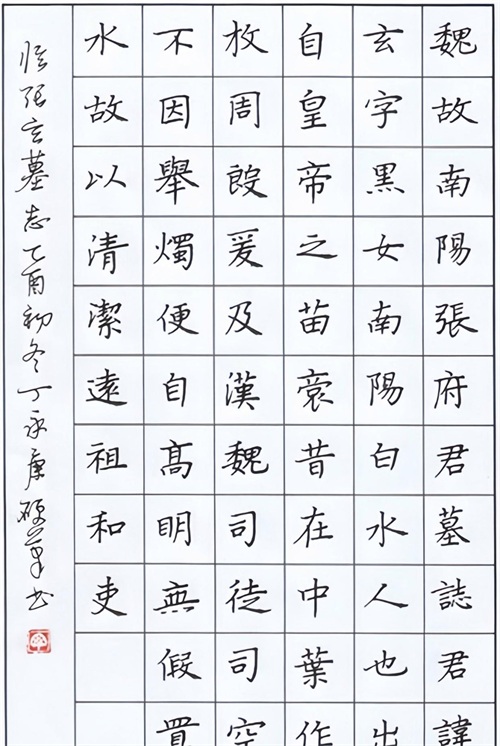 魏故南陽張府君墓誌君諱
玄字黑女南陽白水人也出
自皇帝之苗裔昔在中葉作
枚周殷爰及漢魏司徒司空
不因舉燭便自高明無假置
水故以清潔遠祖和吏
临张玄墓志乙酉初冬丁永康硬笔书